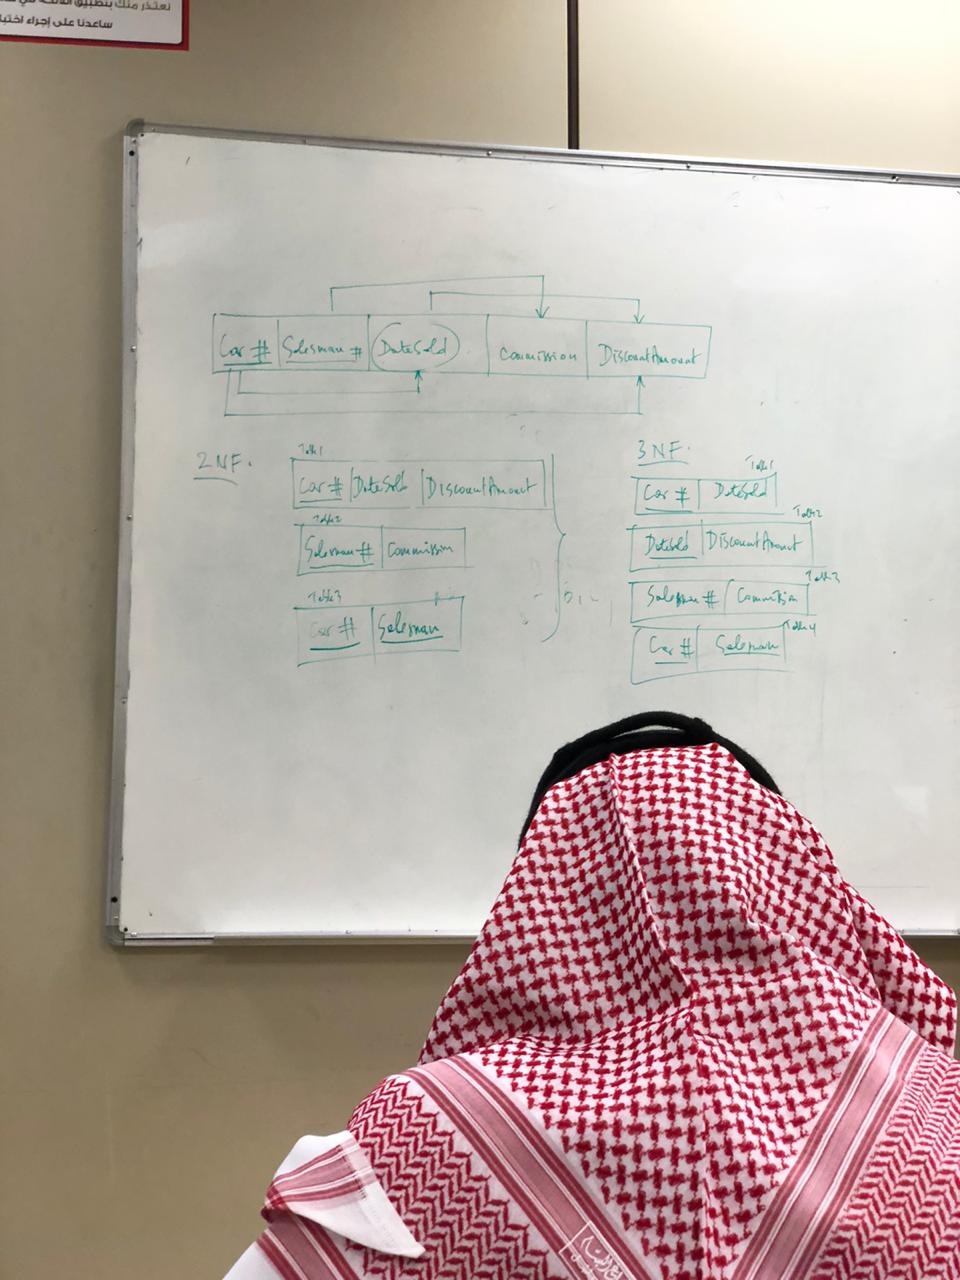 نعتذر منك بتطبيق
ساعدنا على إجراء
Car # Salesman # DateSold Commission DiscountAmount
2NF.
Table1
Car # DateSold DiscountAmount
Table2
Salesman # Commission
Table3
Car # Salesman
3NF.
Table1
Car # DateSold
Table2
DateSold DiscountAmount
Table3
Salesman # Commission
Table4
Car # Salesman